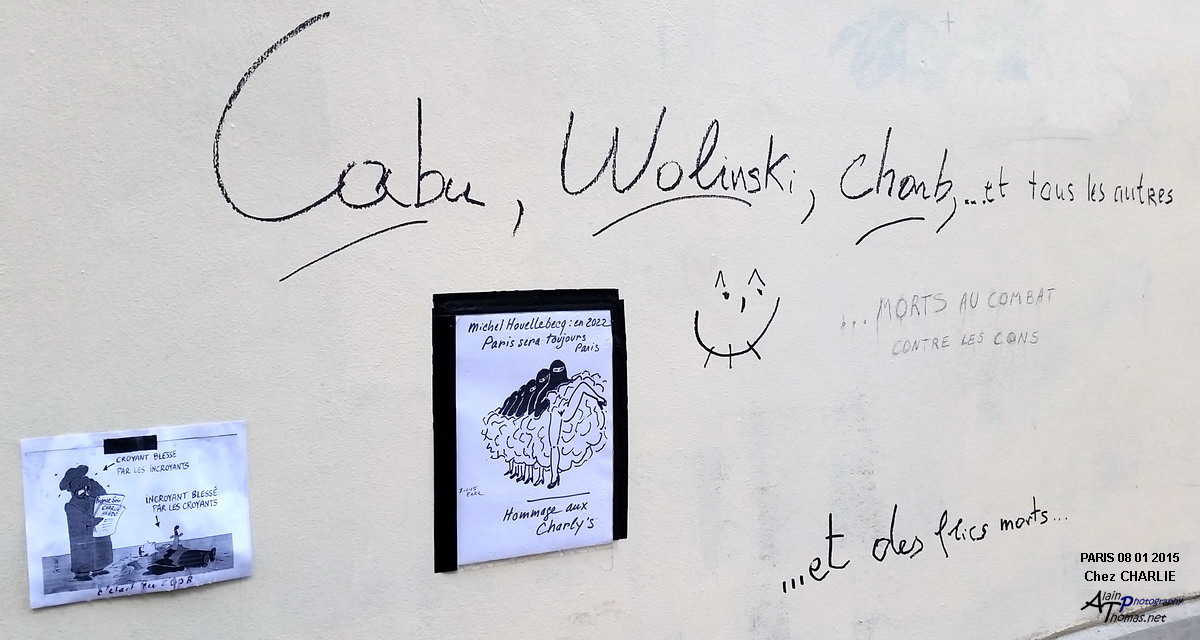 Cabu, Wolinski, Charb, ...et tous les autres
... MORTS AU COMBAT
CONTRE LES CONS
Michel Houellebecq : en 2022
Paris sera toujours
Paris
Hommage aux
Charly's
CROYANT BLESSÉ
PAR LES INCROYANTS
INCROYANT BLESSÉ
PAR LES CROYANTS
CHARLIE
HEBDO
c'était en
...et des flics morts...
PARIS 08 01 2015
Chez CHARLIE
Alain Photography
Thomas.net